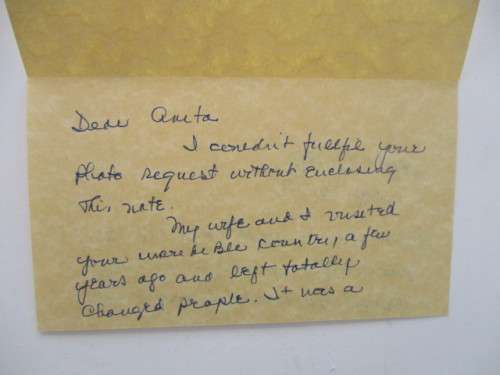 Dear Anita
I couldn't fullfil your
photo request without enclosing
this note.
My wife and I visited
your incredible country, a few
years ago and left totally
changed people. It was a